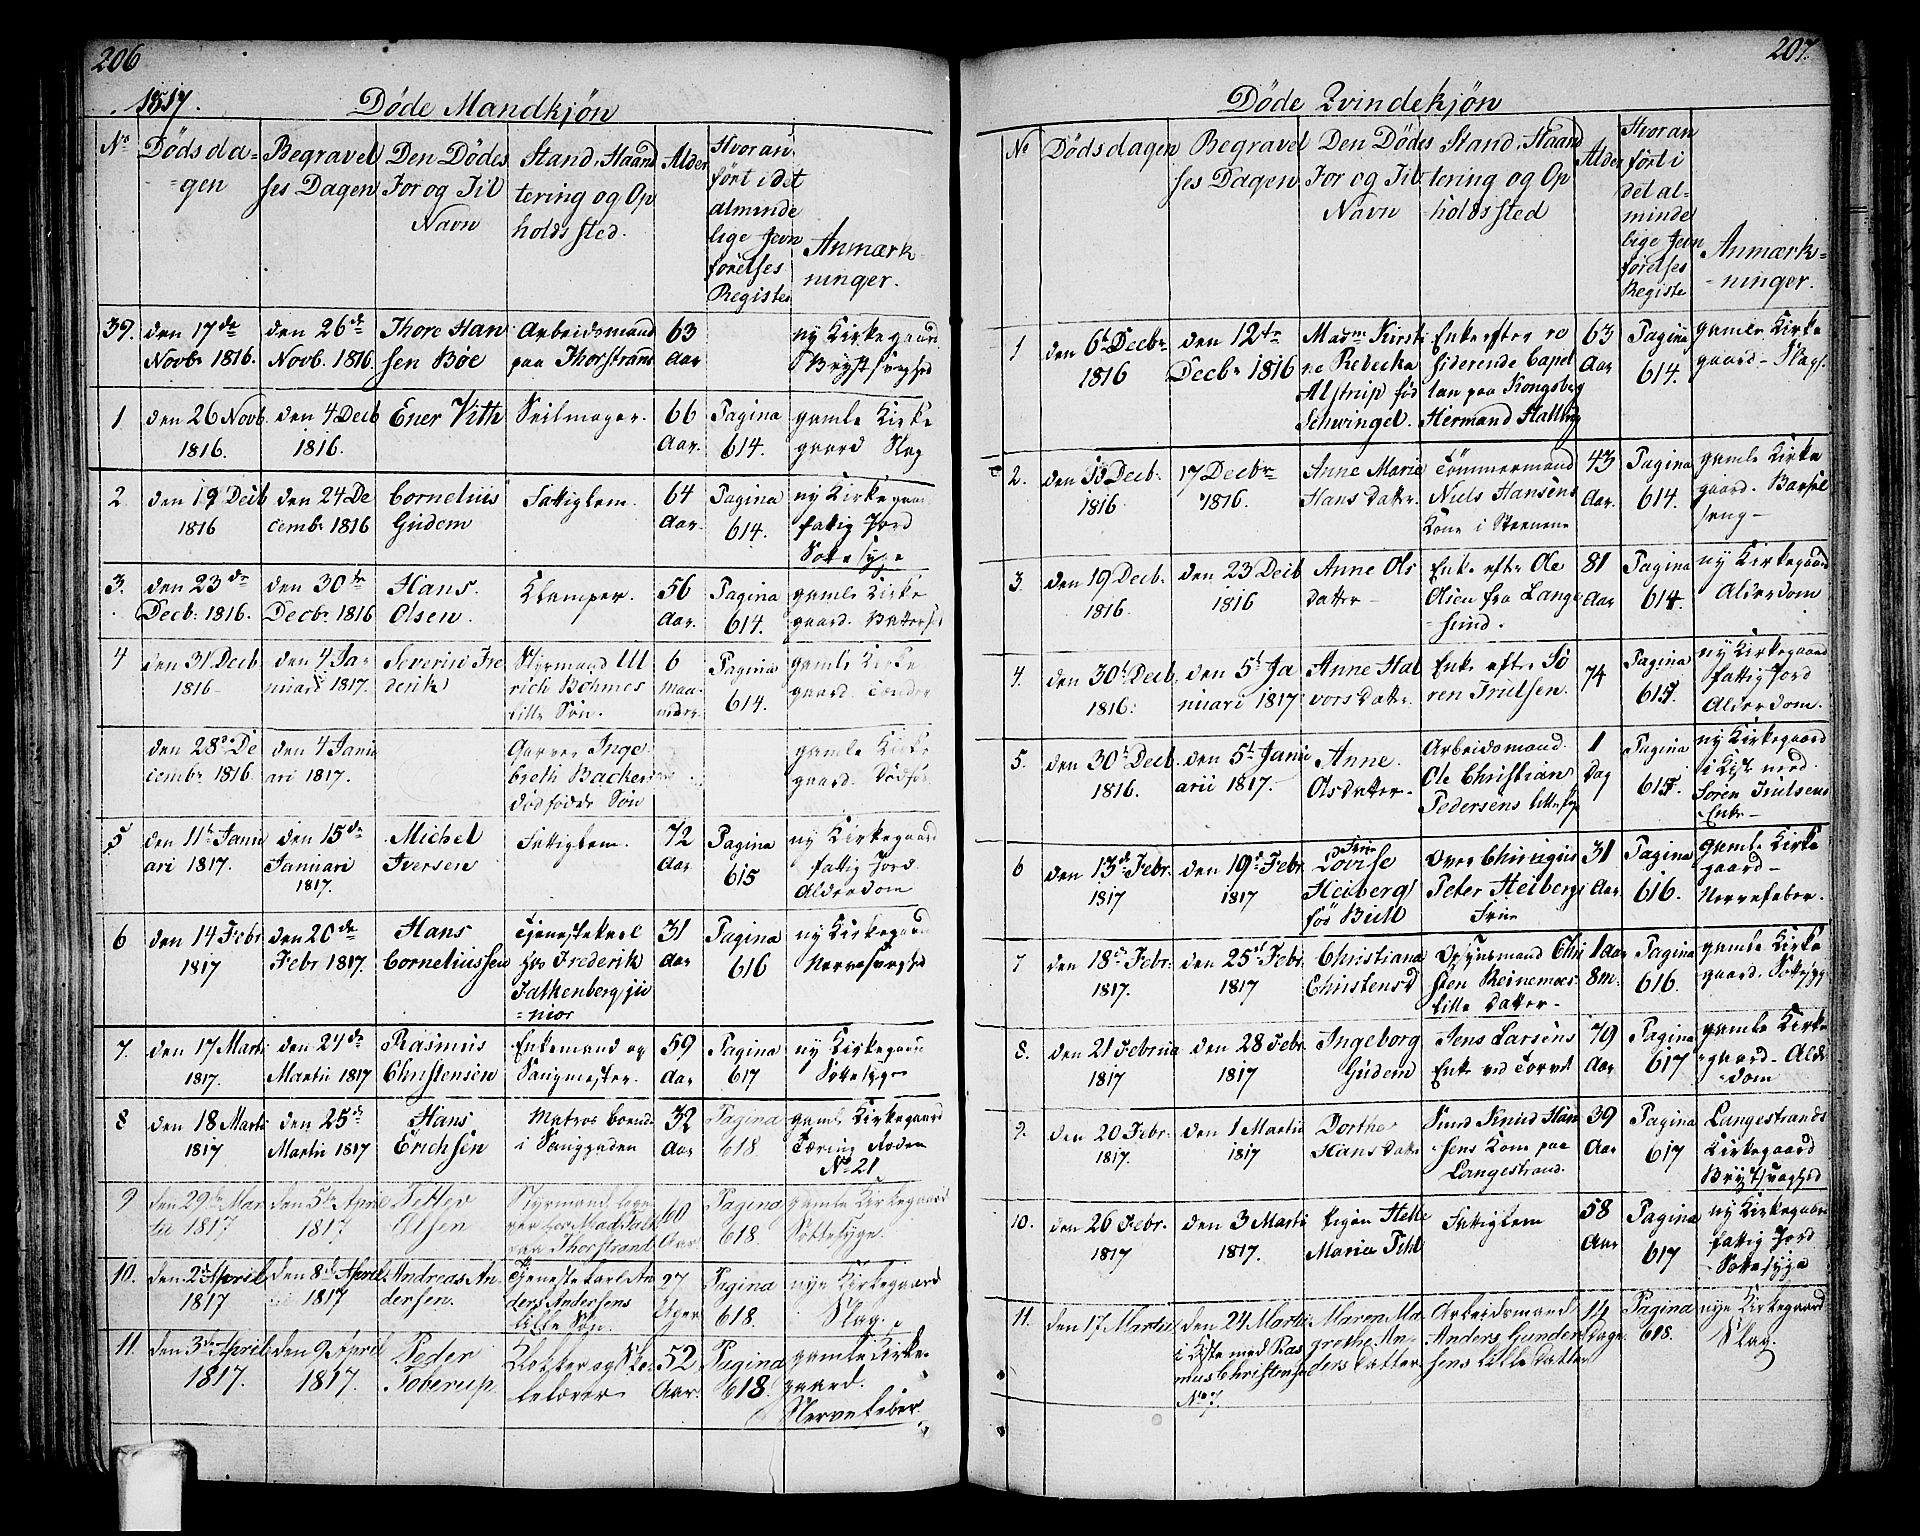 206
1817.
Døde Mandkjøn
No
Dødsda=
=gen
Begravel
ses Dagen
Den Dødes
For og Til
Navn
Stand, Haand
tering og Op
holds sted.
Alder
Hvoran
ført i det
alminde
lige Jevn
førelses
Register
Anmærk-
ninger.
39. den 17de Novbr 1816. den 26de Novb. 1816 Thore Han
sen Bøe Arbeidsmand
paa Thorstrand 63
Aar ny Kirkegaard
Brystsvaghed
1 den 26 Novb.
1816. den 4 Decb
1816. Ener Vith Seilmager. 66
Aar. Pagina
614. gamle Kirke
gaard Slag
2 den 19 Decb
1816 den 24 De
cembr 1816 Cornelius
Gudem Fattiglem. 64
Aar. Pagina
614. ny Kirkegaard
fattig Jord
Sottesyge
3. den 23de
Decb: 1816. den 30te
Decbr 1816 Hans
Olsen. Klamper. 56
Aar. Pagina
614. gamle Kirke
gaard.
4 den 31 Decb
1816- den 4 Ja-
nuari 1817. Severin Fre
derik Styrmand Ul
rich Böhmes
lille Søn. 6
maa
neder. Pagina
614. gamle Kirke
gaard. Tænder
den 28de De
cembr 1816. den 4 Janu
ari 1817. Garver Inge
breth Backer
dødfødde Søn gamle Kirke
gaard. Dödfös.
5 den 11te Janu
ari 1817. den 15de
Januari
1817. Michel
Iversen Fattiglem. 72
Aar Pagina
615 ny Kirkegaard
fattig Jord.
Alderdom
6 den 14 Febr
1817 den 20de
Febr 1817. Hans
Corneliussen Tjenestekarl
hos Frederik
Falkenberg, ju
=nior 31
Aar Pagina
616 ny Kirkegaard
Nervesvaghed
7. den 17 Marti
1817. den 24de
Martii 1817 Rasmus
Christensen Enkemand og
Sangmester. 59
Aar Pagina
617 ny Kirkegaard
Sottesyge
8 den 18 Marti
1817 den 25de
Martii 1817 Hans
Erichsen Matros boende
i Langgaden 32
Aar Pagina
618. gaml Kirkegaard
Tæring Roden
No 21
9 den 29de Mar
tii 1817 den 5te April
1817 Petter
Olsen Styrmand
paa Thorstrand 60
Aar Pagina
618. gamle Kirkegaard
Sottesyge.
10. den 2de April
1817 den 8de April
1817 Andreas An
dersen. Tjenestekarl An
ders Andersens
lille Søn. 27
Uger Pagina
618. nye Kirkegaard
Slag.
11. den 3die April
1817. den 9 April
1817. Peder
Toberup. Klokker og Sko
lelærer 52
Aar. Pagina
618. gamle Kirke-
gaard.
Nervefeber.
207.
Døde Qvindekjøn
No
Dødsdagen
Begravel
ses Dagen
Den Dødes
For og Til
Navn
Stand, Haand
tering og Op
=holdssted
Alder
Hvoran
ført i
det al=
minde
lige Jevn
førelses
Registe
Anmærk=
=ninger.
1 den 6te Decbr
1816 den 12te
Decbr 1816 Madm Kirsti
ne Rebecka
Alstrup fød
Schwingel. Enke efter re
siderende Capel
lan paa Kongsberg
Hermand Halling 63
Aar Pagina
614. gamle Kirke
gaard- Slag.
2. den 13 Decb.
1816 17 Decbr
1816. Anne Marie
Hans Datter. Tømmermand
Niels Hansens
Kone i Steenene 43
Aar. Pagina
614. gamle Kirke
gaard. Barsel
seng-
3. den 19 Decb.
1816. den 23 Decb
1816 Anne Ols
Datter- Enke efter Ole
Olsen fra Lange
=sund. 81
Aar Pagina
614. ny Kirkegaard
Alderdom
4. den 30te Decb.
1816: den 5te Ja
nuari 1817 Anne Hal
vors Datter. Enke efter Sö
ren Trulsen. 74 Pagina
615. ny Kirkegaard
fattig Jord
Alderdom.
5. den 30te Decb.
1816. den 5te Janu
arii 1817. Anne
Ols Datter. Arbeidsmand
Ole Christian
Pedersens lille 1
Dag Pagina
615. ny Kirkegaard
i Kiste med
Søren Trulsens
Enke-
6 den 13de Febr.
1817 den 19de Febr
1817 Frue
Lovise
Heiberg
fød Bull Over Chirurgus
Peter Heibergs
Frue 31
Aar. Pagina
616. gamle Kirke
gaard-
Nervefeber.
7 den 18de Febr.
1817. den 25de Febr.
1817 Christiana
Christensd Opsynsmand Chri
sten Reinemoes
lille Datter- 1 Aar
8m. Pagina
616. gamle Kirke
gaard. Sottesyge
8. den 21 Februa
1817 den 28 Febr.
1817 Ingeborg
Gudem Jens Larsens
Enke ved Torvet 79
Aar Pagina
617 gamle Kirke
=gaard- Alder
=dom
9. den 20 Febr.
1817. den 1 Martii
1817 Dorthe
Hans Datter Knud Han
sens Kone paa
Langestrand. 39
Aar Pagina
617 Langestrands
Kirkegaard
Brystsvaghed
10. den 26 Febr.
1817 den 3 Marti
1817. Pigen Helle
Maria Pihl Fattiglem 58
Aar Pagina
617 ny Kirkegaard
fattig Jord
Sottesyge
11. den 17 Martii den 24 Martii
i Kiste med Ras
mus Christensen
No 7. Maren Mar
grethe An-
ders Datter Arbeidsmand
Anders Gunder
sens lille Datter 14
Dage Pagina
618. nye Kirkegaard
Slag.